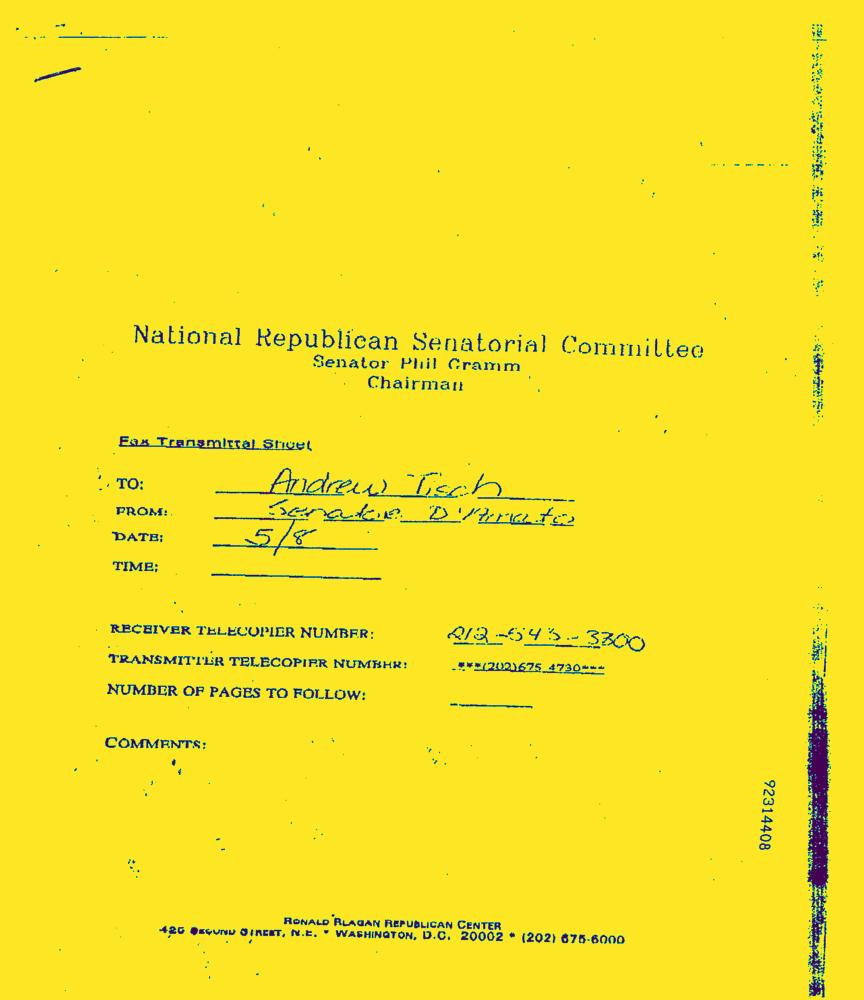 National Republican Senatorial Committee
Senator Phil Gramm
Chairman
Fax Transmittal Sheet
TO: Andrew Tisch
FROM: Senator D'Amato
DATE: 5/8
TIME:
RECEIVER TELECOPIER NUMBER: 212-545-3300
TRANSMITTER TELECOPIER NUMBER: ***(202)675 4730***
NUMBER OF PAGES TO FOLLOW:
COMMENTS:
92314408
RONALD REAGAN REPUBLICAN CENTER
425 SECOND STREET, N.E. * WASHINGTON, D.C. 20002 * (202) 675-6000